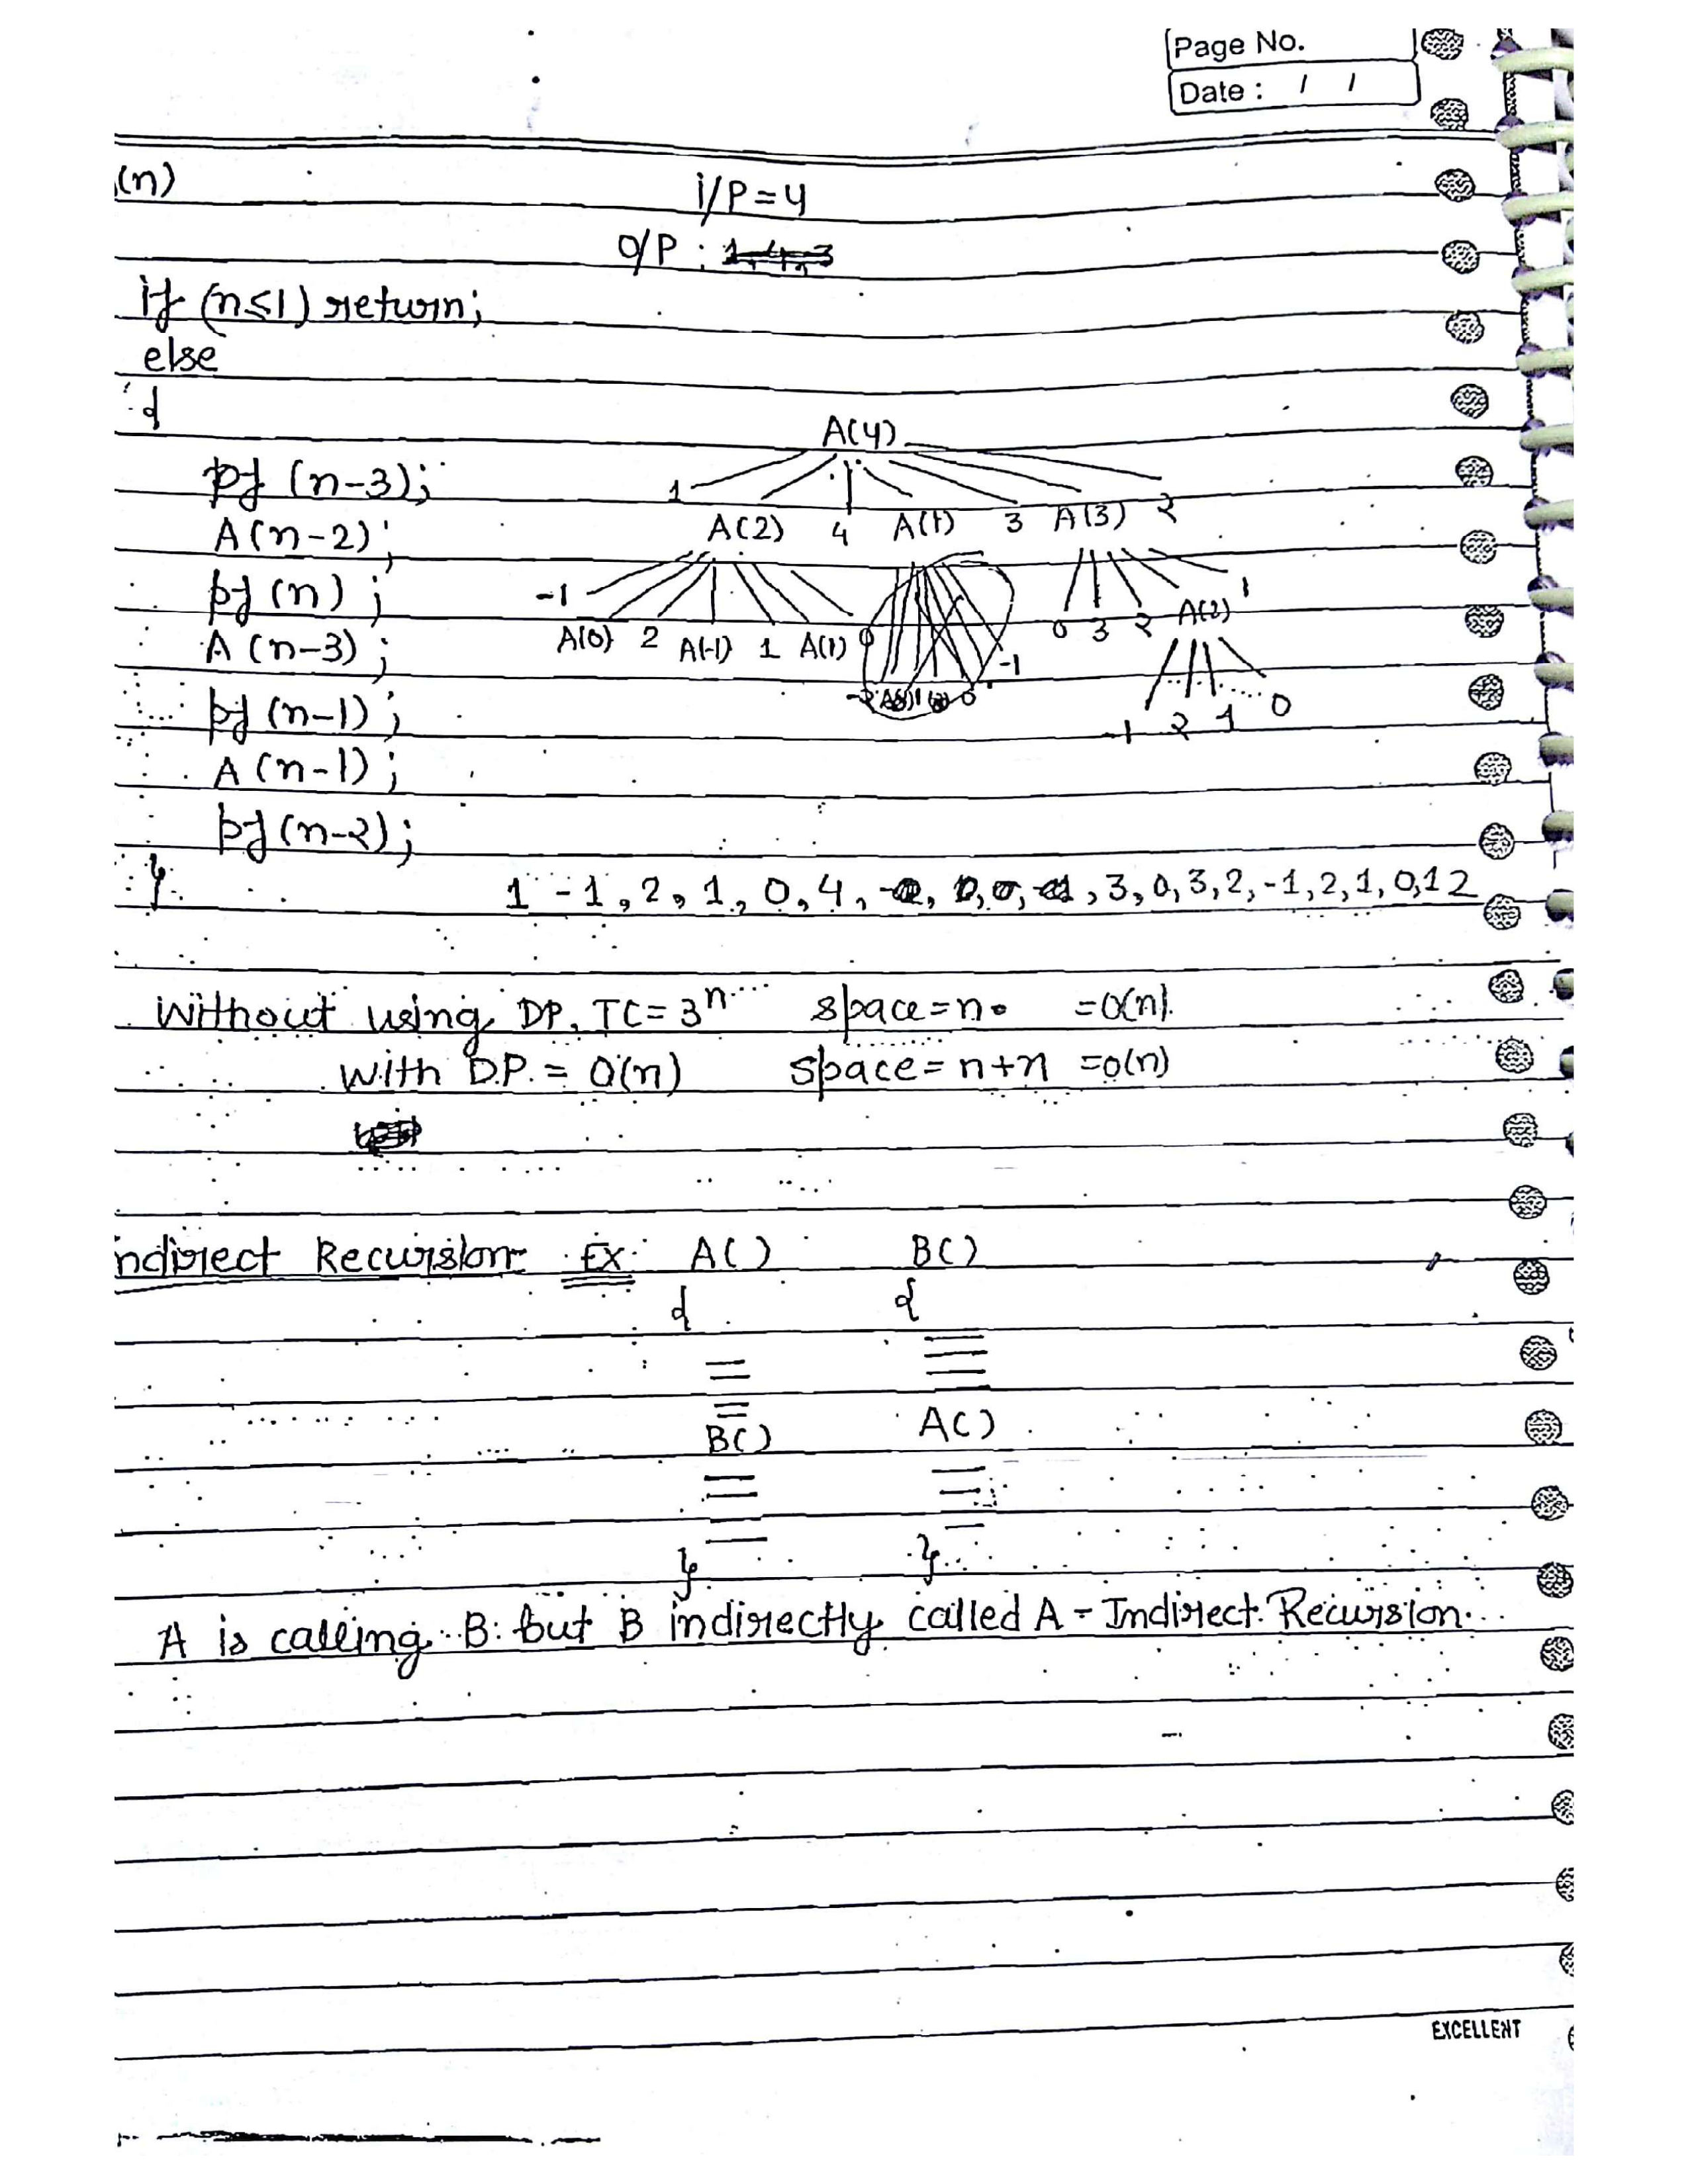 Page No.
Date : / /
(n)
i/P = 4
O/P :
if (n≤1) return;
else
{
A(4)
pf (n-3);
1 A(2) 4 A(1) 3 A(3) 2
A(n-2);
pf (n);
-1 A(0) 2 A(-1) 1 A(1) 0
0 3 2 A(2) 1
A (n-3);
-1 2 1 0
pf (n-1);
A (n-1);
pf (n-2);
}
1 -1, 2, 1, 0, 4, 3, 0, 3, 2, -1, 2, 1, 0, 1 2
Without using DP, TC = 3ⁿ space = n = O(n).
With D.P. = O(n) space = n+n = O(n)
ndirect Recursion Ex: A( ) B( )
{ {
B( ) A( )
} }
A is calling B but B indirectly called A - Indirect Recursion.
EXCELLENT